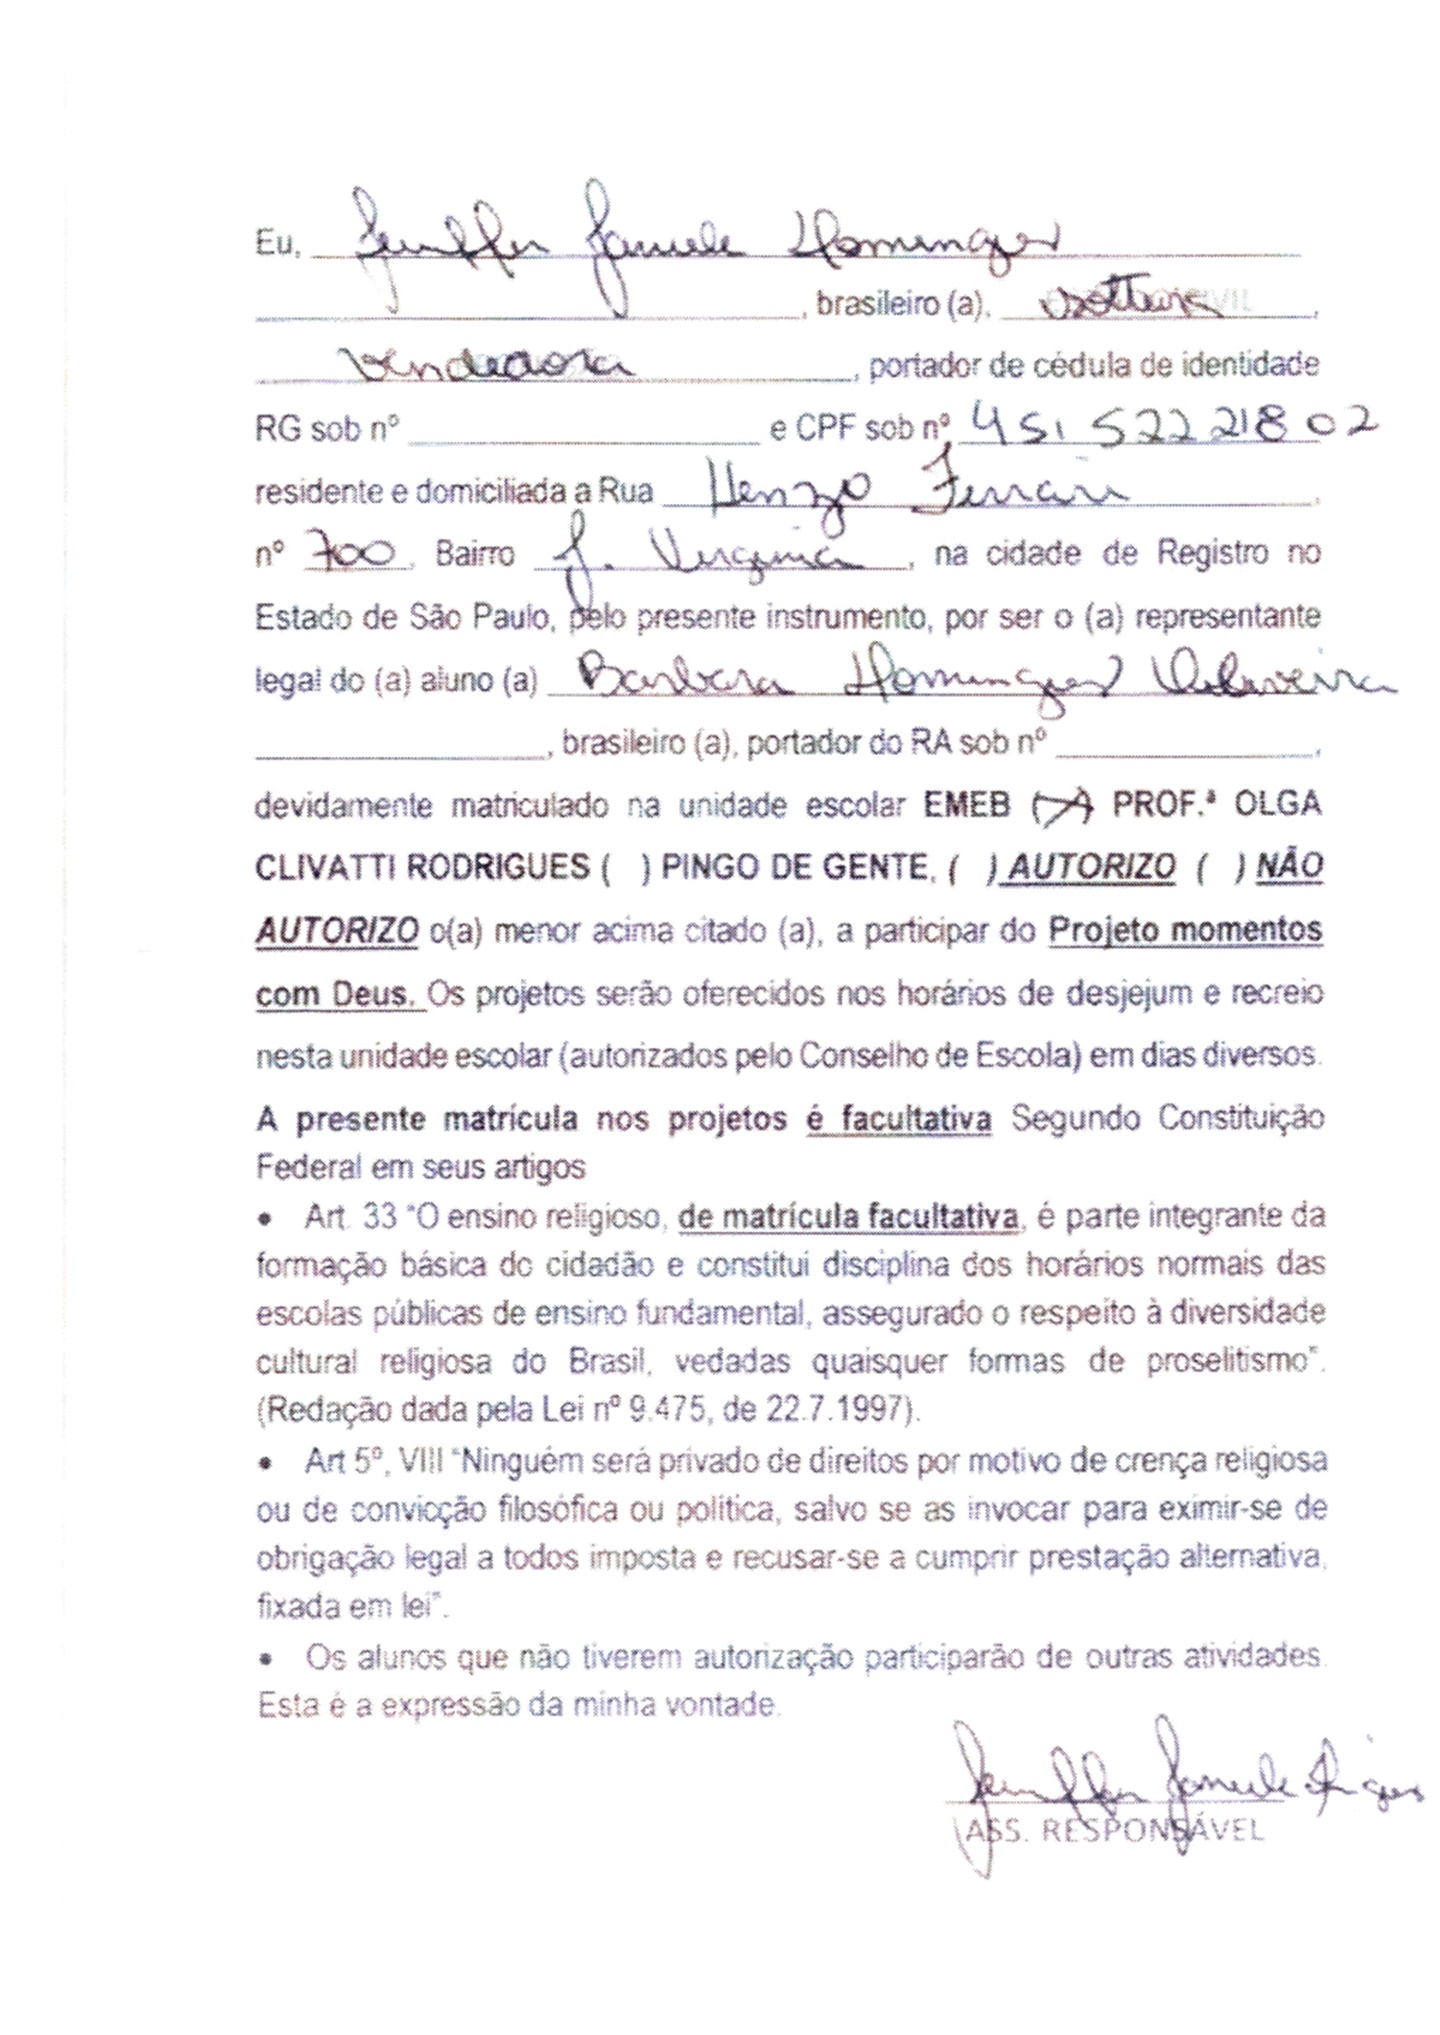 Eu, Jeniffer Daniele Domingues
, brasileiro (a), solteira,
Vendedora, portador de cédula de identidade
RG sob nº e CPF sob nº 451 522 218 02
residente e domiciliada a Rua Henzo Ferrari,
nº 700, Bairro J. Virginia, na cidade de Registro no
Estado de São Paulo, pelo presente instrumento, por ser o (a) representante
legal do (a) aluno (a) Barbara Domingues Oliveira
, brasileiro (a), portador do RA sob nº ,
devidamente matriculado na unidade escolar EMEB (X) PROF.ª OLGA
CLIVATTI RODRIGUES ( ) PINGO DE GENTE, ( ) AUTORIZO ( ) NÃO
AUTORIZO o(a) menor acima citado (a), a participar do Projeto momentos
com Deus. Os projetos serão oferecidos nos horários de desjejum e recreio
nesta unidade escolar (autorizados pelo Conselho de Escola) em dias diversos.
A presente matrícula nos projetos é facultativa Segundo Constituição
Federal em seus artigos
• Art. 33 "O ensino religioso, de matrícula facultativa, é parte integrante da
formação básica do cidadão e constitui disciplina dos horários normais das
escolas públicas de ensino fundamental, assegurado o respeito à diversidade
cultural religiosa do Brasil, vedadas quaisquer formas de proselitismo".
(Redação dada pela Lei nº 9.475, de 22.7.1997).
• Art 5º, VIII "Ninguém será privado de direitos por motivo de crença religiosa
ou de convicção filosófica ou política, salvo se as invocar para eximir-se de
obrigação legal a todos imposta e recusar-se a cumprir prestação alternativa,
fixada em lei".
• Os alunos que não tiverem autorização participarão de outras atividades.
Esta é a expressão da minha vontade.
Jeniffer Daniele
ASS. RESPONSÁVEL